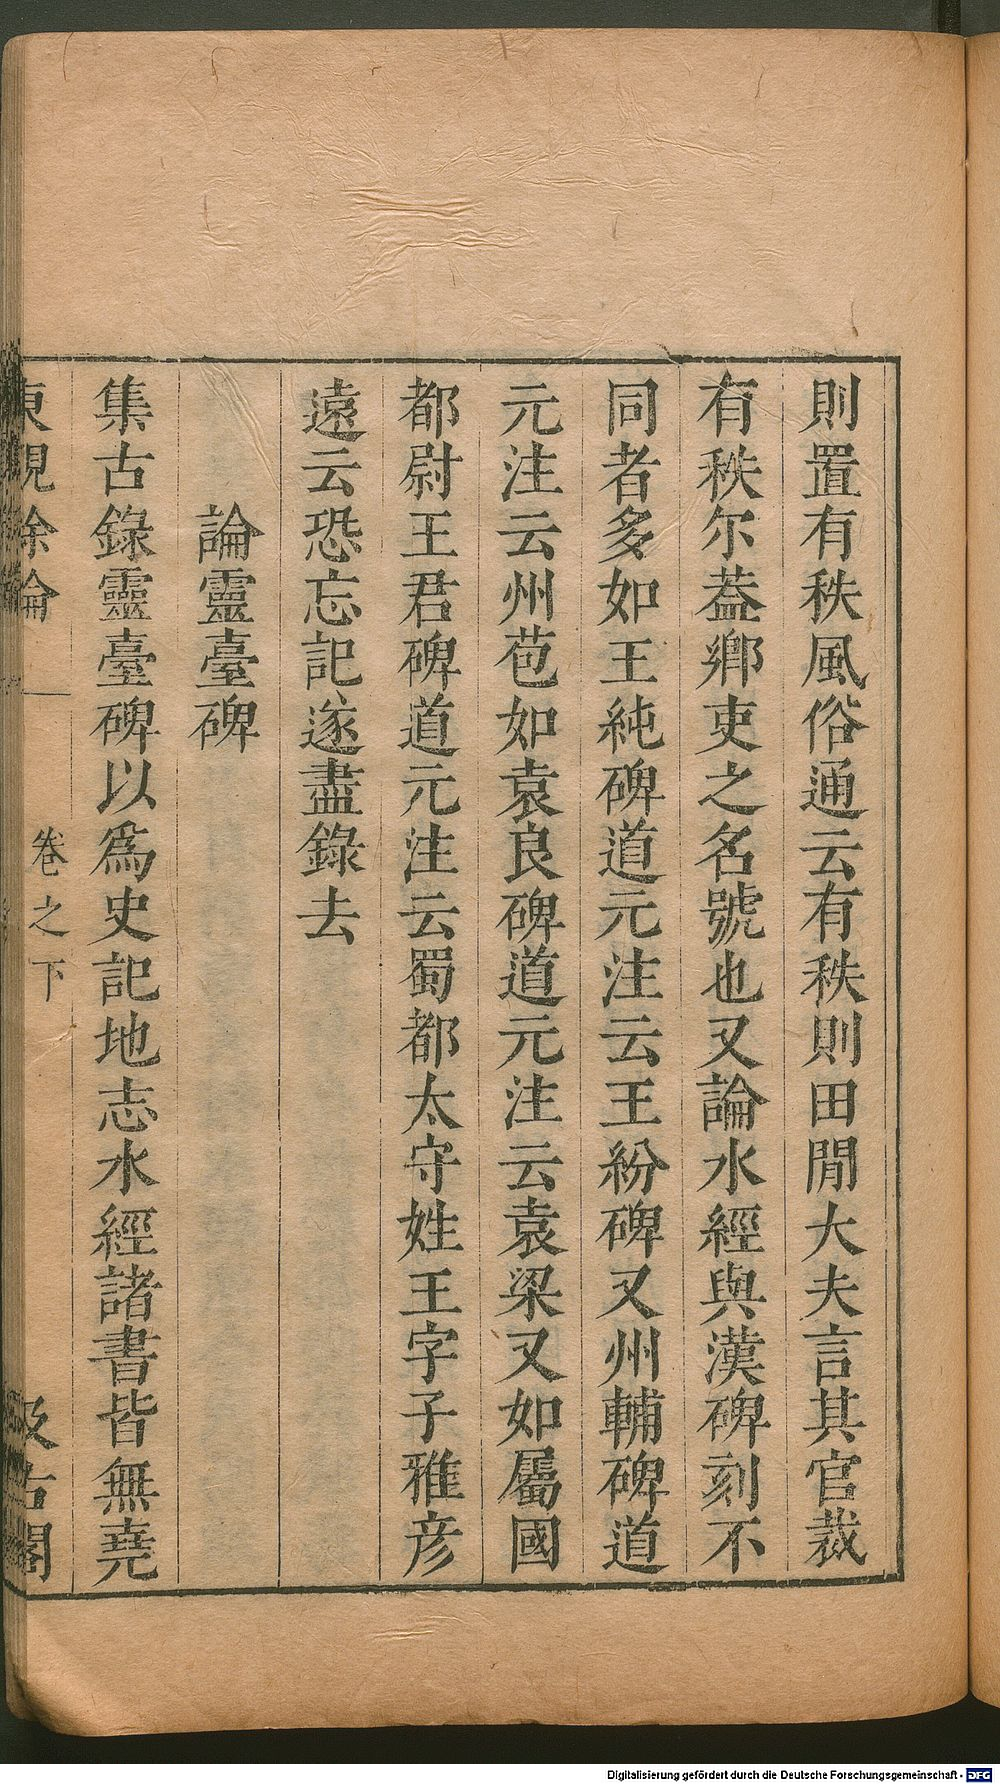 則置有秩風俗通云有秩則田閒大夫言其官裁
有秩尔葢鄉吏之名號也又論水經與漢碑刻不
同者多如王純碑道元注云王紛碑又州輔碑道
元注云州苞如袁良碑道元注云袁梁又如屬國
都尉王君碑道元注云蜀都太守姓王字子雅彦
遠云恐忘記遂盡錄去
論靈臺碑
集古錄靈臺碑以爲史記地志水經諸書皆無堯
東觀餘論 卷之下 汲古閣
Digitalisierung gefördert durch die Deutsche Forschungsgemeinschaft - DFG